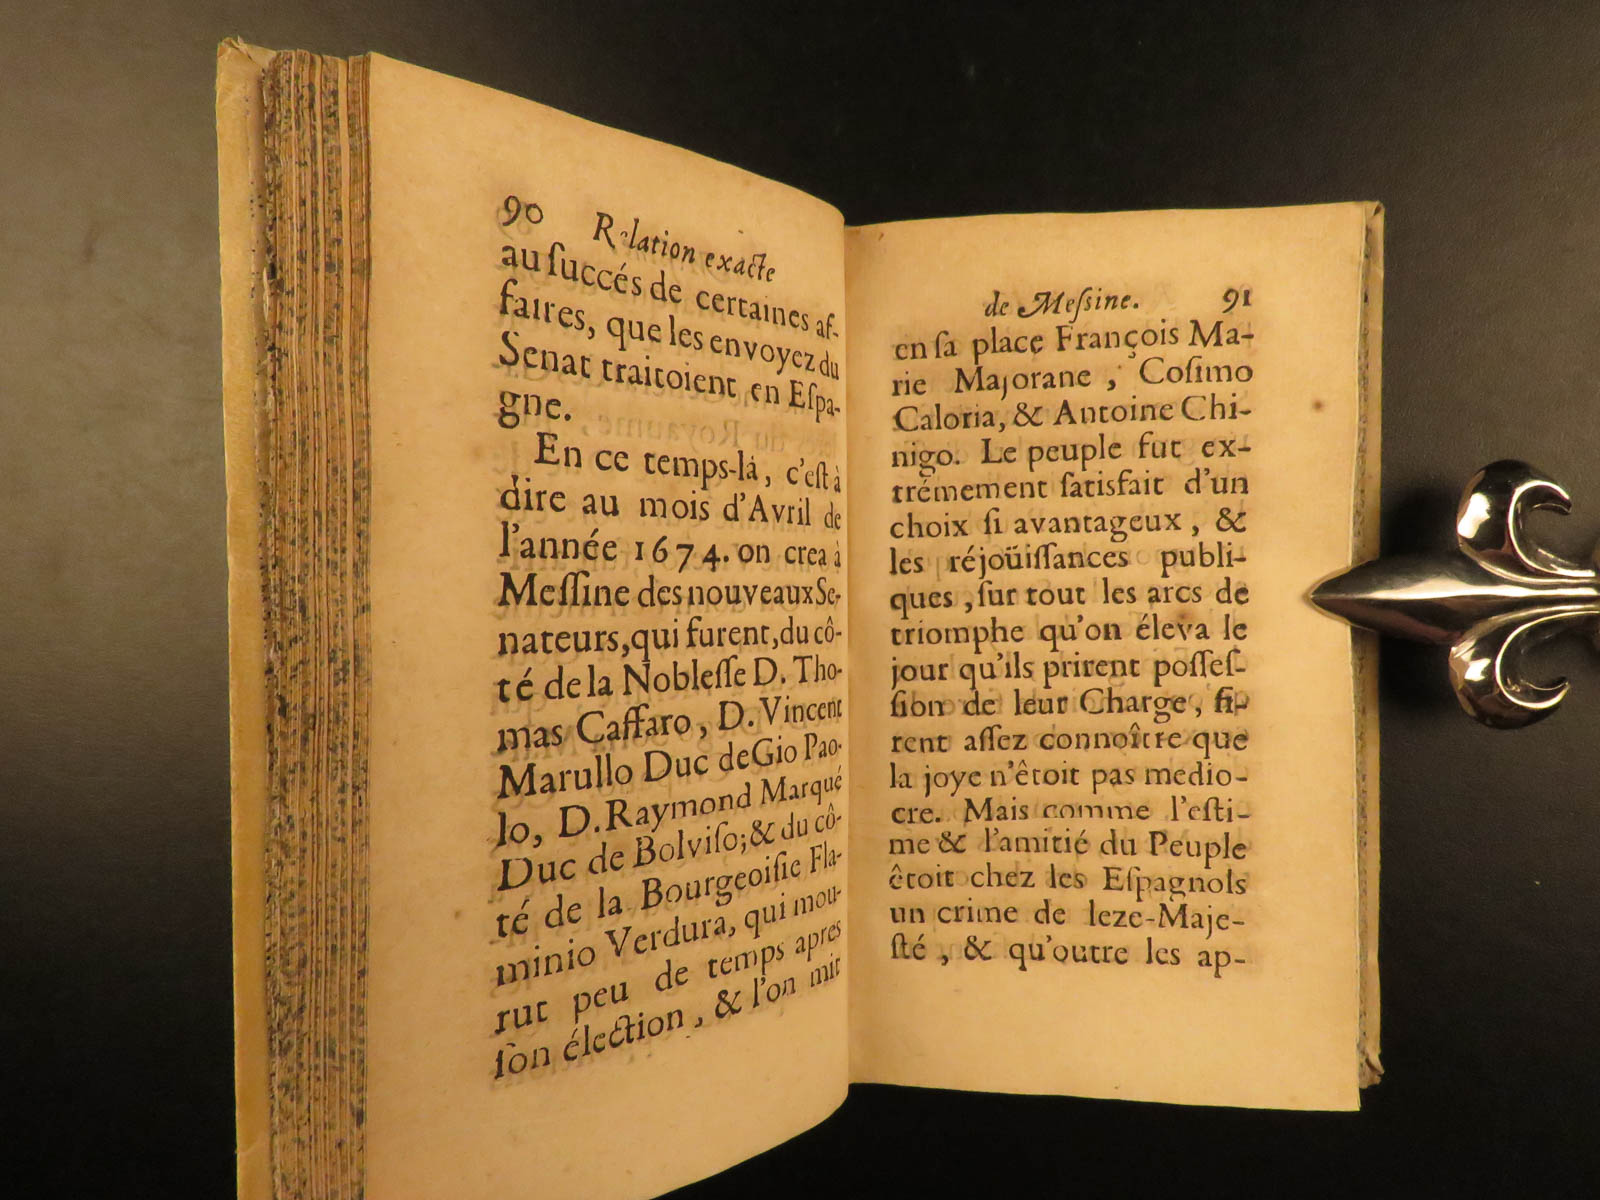 90 Relation exacte
au ſuccés de certaines af-
faires, que les envoyez du
Senat traitoient en Eſpa-
gne.
En ce temps-là, c'eſt à
dire au mois d'Avril de
l'année 1674. on crea à
Meſſine des nouveaux Se-
nateurs, qui furent, du cô-
té de la Nobleſſe D. Tho-
mas Caffaro, D. Vincent
Marullo Duc de Gio Pao-
lo, D. Raymond Marqué
Duc de Bolviſo; & du cô-
té de la Bourgeoiſie Fla-
minio Verdura, qui mou-
rut peu de temps apres
ſon élection, & l'on mit
de Meſſine. 91
en ſa place François Ma-
rie Majorane, Coſimo
Caloria, & Antoine Chi-
nigo. Le peuple fut ex-
trémement ſatisfait d'un
choix ſi avantageux, &
les réjoüiſſances publi-
ques, ſur tout les arcs de
triomphe qu'on éleva le
jour qu'ils prirent poſſeſ-
ſion de leur Charge, fi-
rent aſſez connoître que
la joye n'êtoit pas medio-
cre. Mais comme l'eſti-
me & l'amitié du Peuple
êtoit chez les Eſpagnols
un crime de leze-Maje-
ſté, & qu'outre les ap-